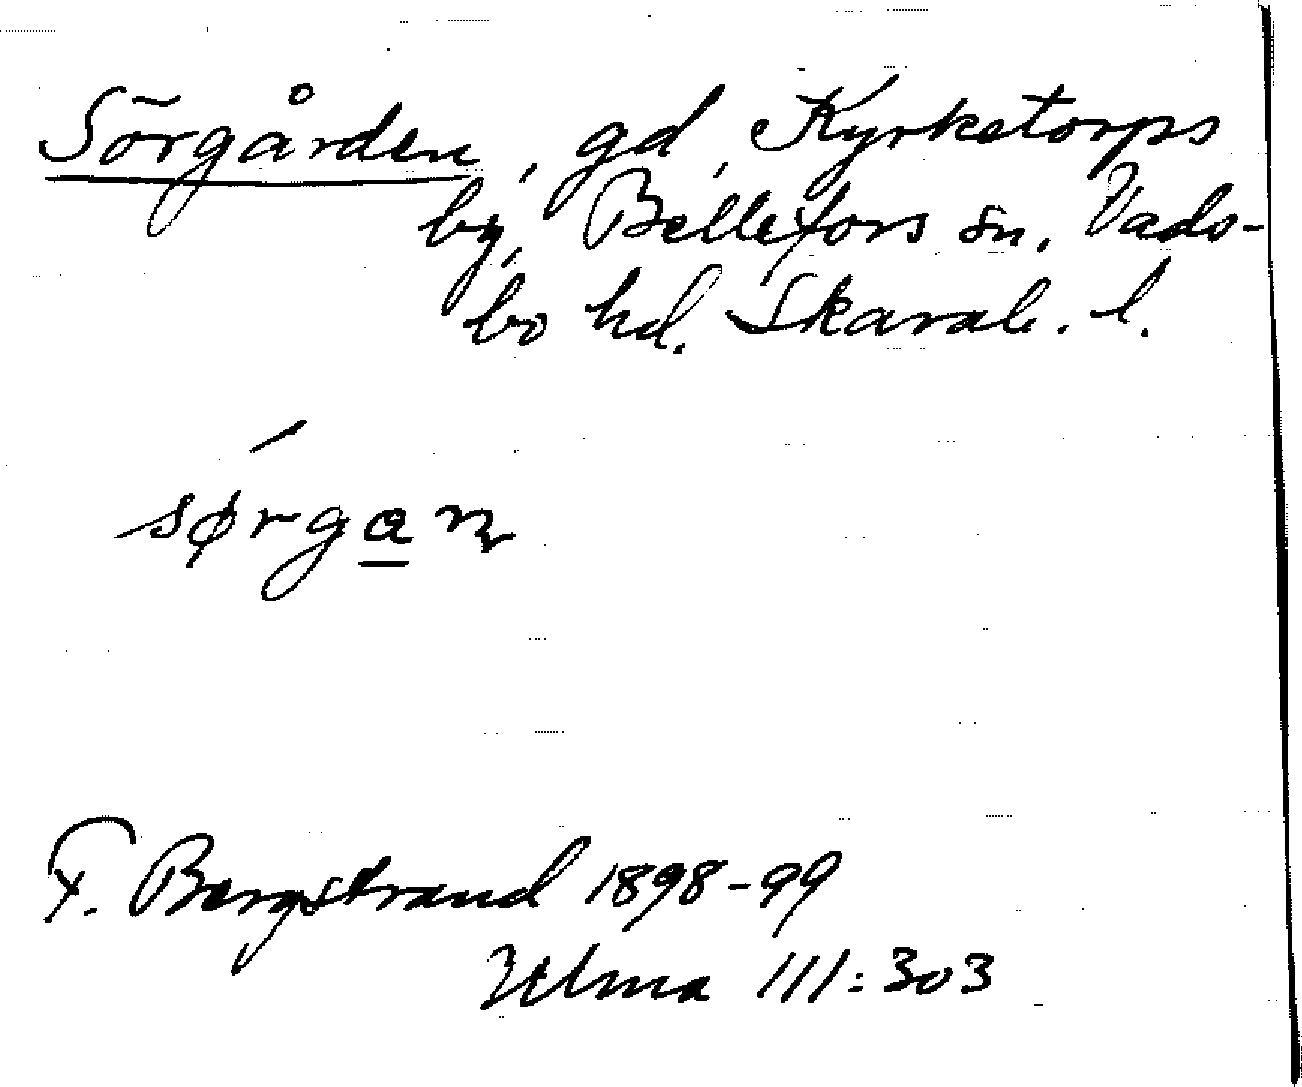 Sörgården, gd, Kyrketorps
by, Bellefors sn, Vads-
bo hd. Skarab. l.
sǿrga̲n
F. Bergstrand 1898-99
Ulma 111:303